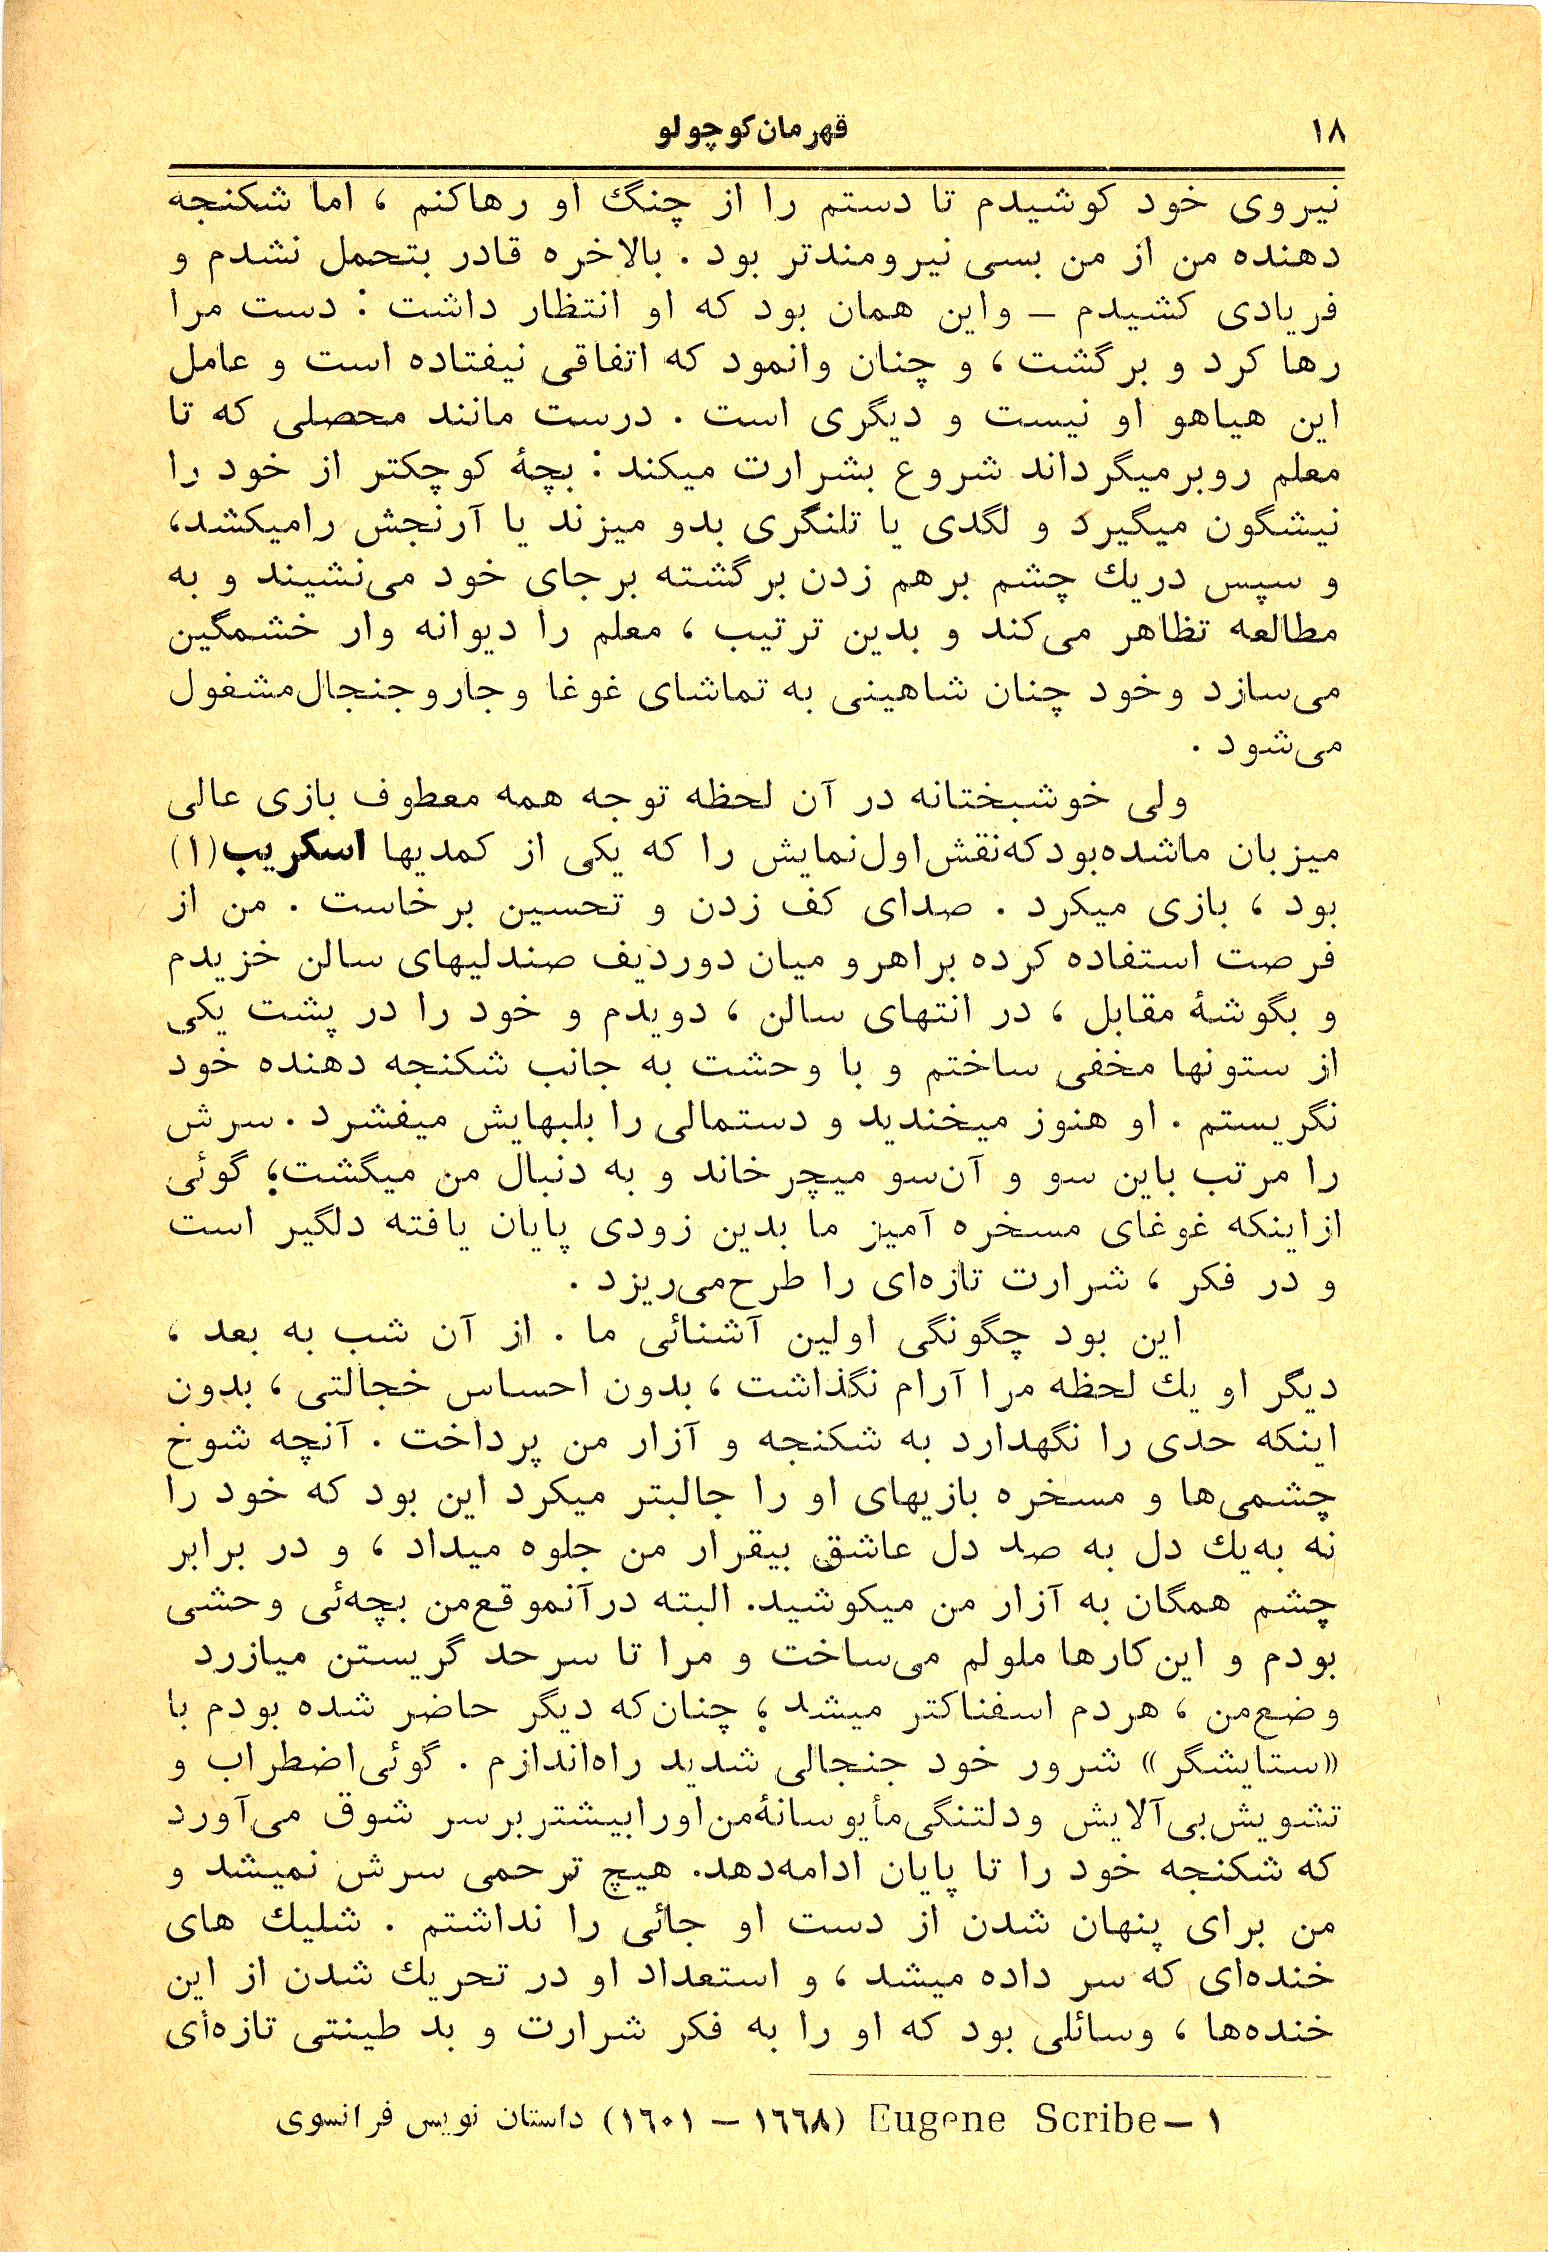 ۱۸
قهرمان کوچولو
نیروی خود کوشیدم تا دستم را از چنگ او رهاکنم ، اما شکنجه
دهنده من از من بسی نیرومندتر بود . بالاخره قادر بتحمل نشدم و
فریادی کشیدم ــ واین همان بود که او انتظار داشت : دست مرا
رها کرد و برگشت ، و چنان وانمود که اتفاقی نیفتاده است و عامل
این هیاهو او نیست و دیگری است . درست مانند محصلی که تا
معلم روبرمیگرداند شروع بشرارت میکند : بچهٔ کوچکتر از خود را
نیشگون میگیرد و لگدی یا تلنگری بدو میزند یا آرنجش رامیکشد،
و سپس دریك چشم برهم زدن برگشته برجای خود می‌نشیند و به
مطالعه تظاهر می‌کند و بدین ترتیب ، معلم را دیوانه وار خشمگین
می‌سازد وخود چنان شاهینی به تماشای غوغا وجاروجنجال‌مشغول
می‌شود .
ولی خوشبختانه در آن لحظه توجه همه معطوف بازی عالی
میزبان ماشده‌بودکه‌نقش‌اول‌نمایش را که یکی از کمدیها اسکریب(۱)
بود ، بازی میکرد . صدای کف زدن و تحسین برخاست . من از
فرصت استفاده کرده براهرو میان دوردیف صندلیهای سالن خزیدم
و بگوشهٔ مقابل ، در انتهای سالن ، دویدم و خود را در پشت یکی
از ستونها مخفی ساختم و با وحشت به جانب شکنجه دهنده خود
نگریستم . او هنوز میخندید و دستمالی را بلبهایش میفشرد . سرش
را مرتب باین سو و آن‌سو میچرخاند و به دنبال من میگشت؛ گوئی
ازاینکه غوغای مسخره آمیز ما بدین زودی پایان یافته دلگیر است
و در فکر ، شرارت تازه‌ای را طرح‌می‌ریزد .
این بود چگونگی اولین آشنائی ما . از آن شب به بعد ،
دیگر او یك لحظه مرا آرام نگذاشت ، بدون احساس خجالتی ، بدون
اینکه حدی را نگهدارد به شکنجه و آزار من پرداخت . آنچه شوخ
چشمی‌ها و مسخره بازیهای او را جالبتر میکرد این بود که خود را
نه به‌یك دل به صد دل عاشق بیقرار من جلوه میداد ، و در برابر
چشم همگان به آزار من میکوشید. البته درآنموقع‌من بچه‌ئی وحشی
بودم و این‌کارها ملولم می‌ساخت و مرا تا سرحد گریستن میازرد
وضع‌من ، هردم اسفناکتر میشد ؛ چنان‌که دیگر حاضر شده بودم با
«ستایشگر» شرور خود جنجالی شدید راه‌اندازم . گوئی‌اضطراب و
تشویش‌بی‌آلایش ودلتنگی‌مأیوسانهٔ‌من‌اورابیشتربرسر شوق می‌آورد
که شکنجه خود را تا پایان ادامه‌دهد. هیچ ترحمی سرش نمیشد و
من برای پنهان شدن از دست او جائی را نداشتم . شلیك های
خنده‌ای که سر داده میشد ، و استعداد او در تحریك شدن از این
خنده‌ها ، وسائلی بود که او را به فکر شرارت و بد طینتی تازه‌ای
۱ــ Eugene Scribe (۱۶۶۸ ــ ۱۶۰۱) داستان نویس فرانسوی